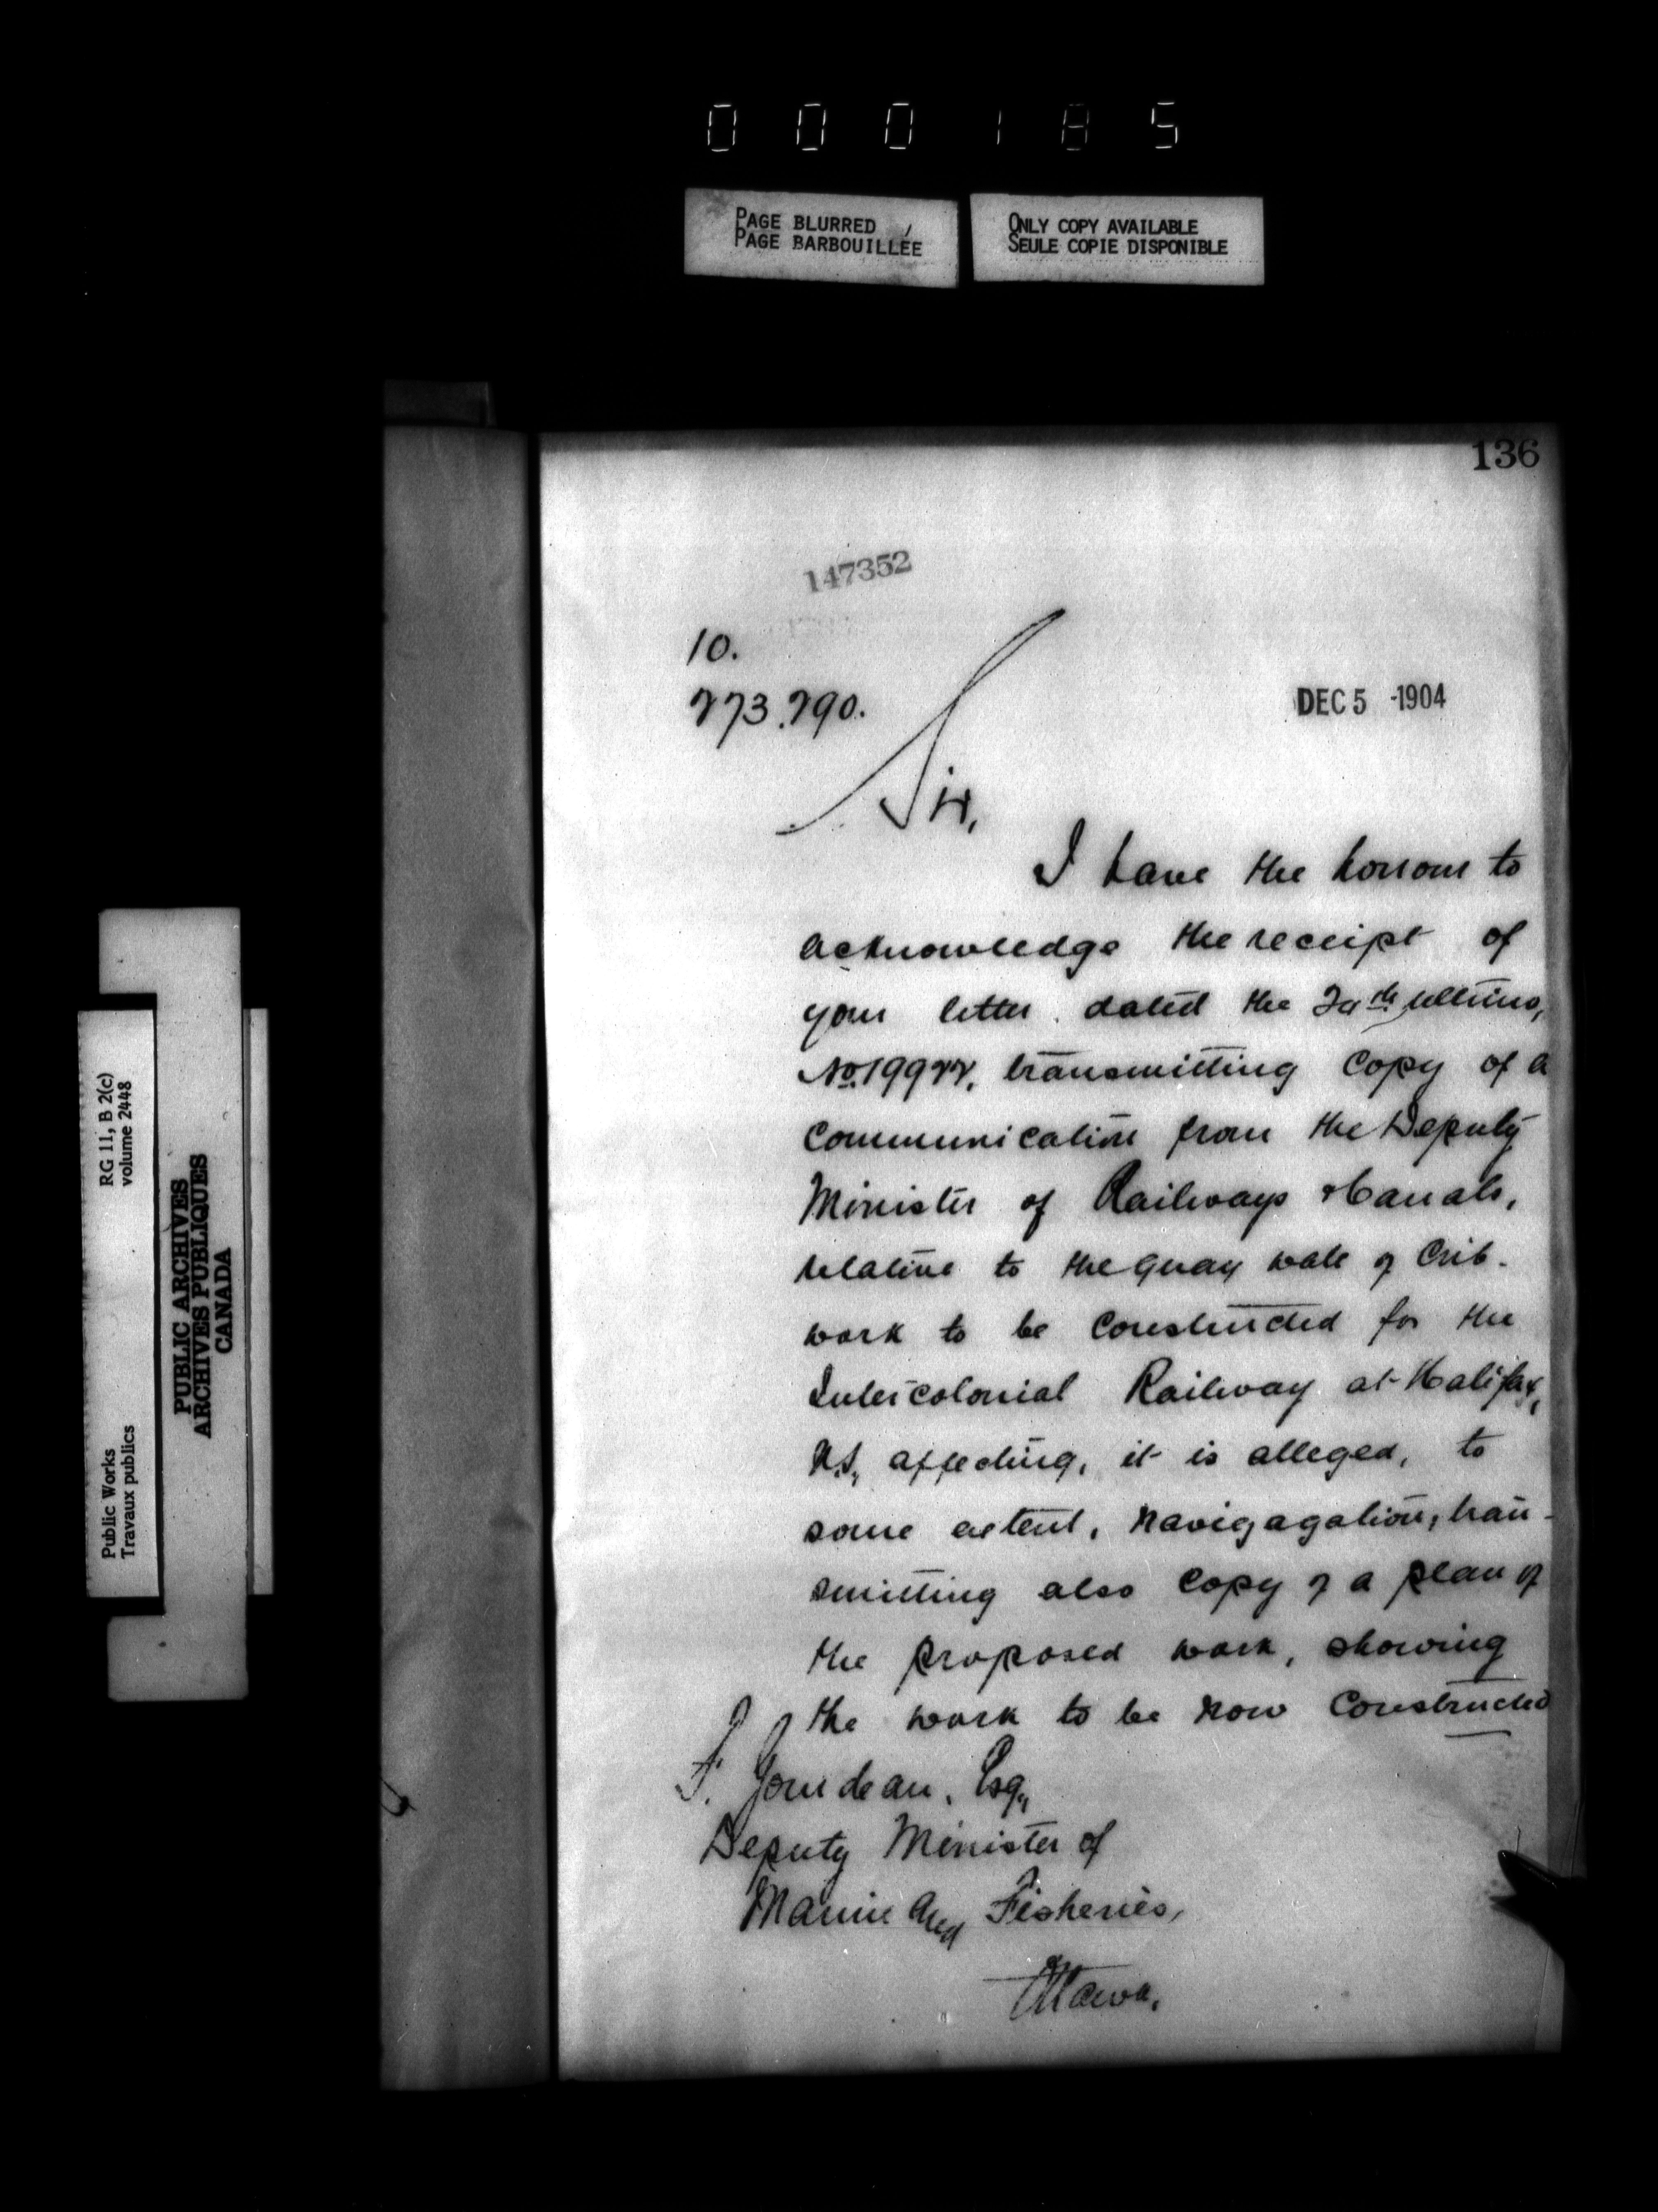 000185
PAGE BLURRED
PAGE BARBOUILLÉE
ONLY COPY AVAILABLE
SEULE COPIE DISPONIBLE
136
147352
10.
273.290.
DEC 5 -1904
Sir,
I have the honour to
acknowledge the receipt of
your letter dated the ultimo,
No. 19922, transmitting copy of a
communication from the Deputy
Minister of Railways & Canals,
relative to the quay wall of Crib-
work to be constructed for the
Intercolonial Railway at Halifax,
N.S., affecting, it is alleged, to
some extent, navigagation, tran-
smitting also copy of a plan of
the proposed work, showing
the work to be now constructed
F. Gourdeau, Esq.,
Deputy Minister of
Marine and Fisheries,
Ottawa.
RG 11, B 2(c)
volume 2448
Public Works
Travaux publics
PUBLIC ARCHIVES
ARCHIVES PUBLIQUES
CANADA